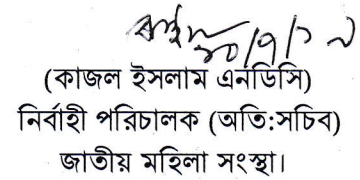 ১০/৭/১৭
(কাজল ইসলাম এনডিসি)
নির্বাহী পরিচালক (অতি:সচিব)
জাতীয় মহিলা সংস্থা।